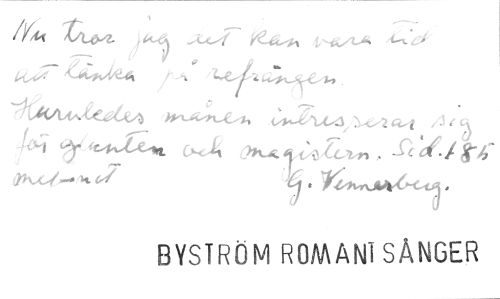 Nu tror jag det kan vara tid
att tänka på refrängen.
Huruledes månen intresserar sig
för glunten och magistern. Sid. 185
G. Wennerberg.
BYSTRÖM ROMANTSÅNGER